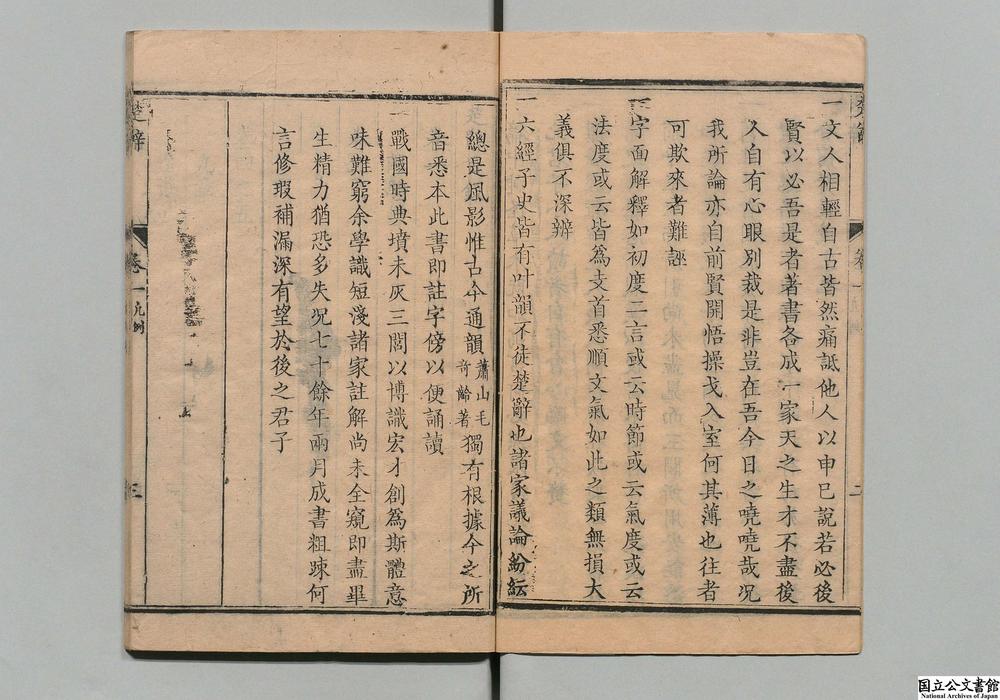 一文人相輕自古皆然痛詆他人以申己說若必後
賢以必吾是者著書各成一家天之生才不盡後
人自有心眼別裁是非豈在吾今日之嘵嘵哉況
我所論亦自前賢開悟操戈入室何其薄也往者
可欺來者難誣
一字面解釋如初度二言或云時節或云氣度或云
法度或云皆為攴首悉順文氣如此之類無損大
義俱不深辨
一六經子史皆有叶韻不徒楚辭也諸家議論紛紜
二
總是風影惟古今通韻蕭山毛奇齡著獨有根據今之所
音悉本此書即註字傍以便誦讀
一戰國時典墳未灰三閭以博識宏才創為斯體意
味難窮余學識短淺諸家註解尚未全窺即盡畢
生精力猶恐多失況七十餘年兩月成書粗疎何
言修瑕補漏深有望於後之君子
楚辭
卷一凡例
三
国立公文書館
National Archives of Japan